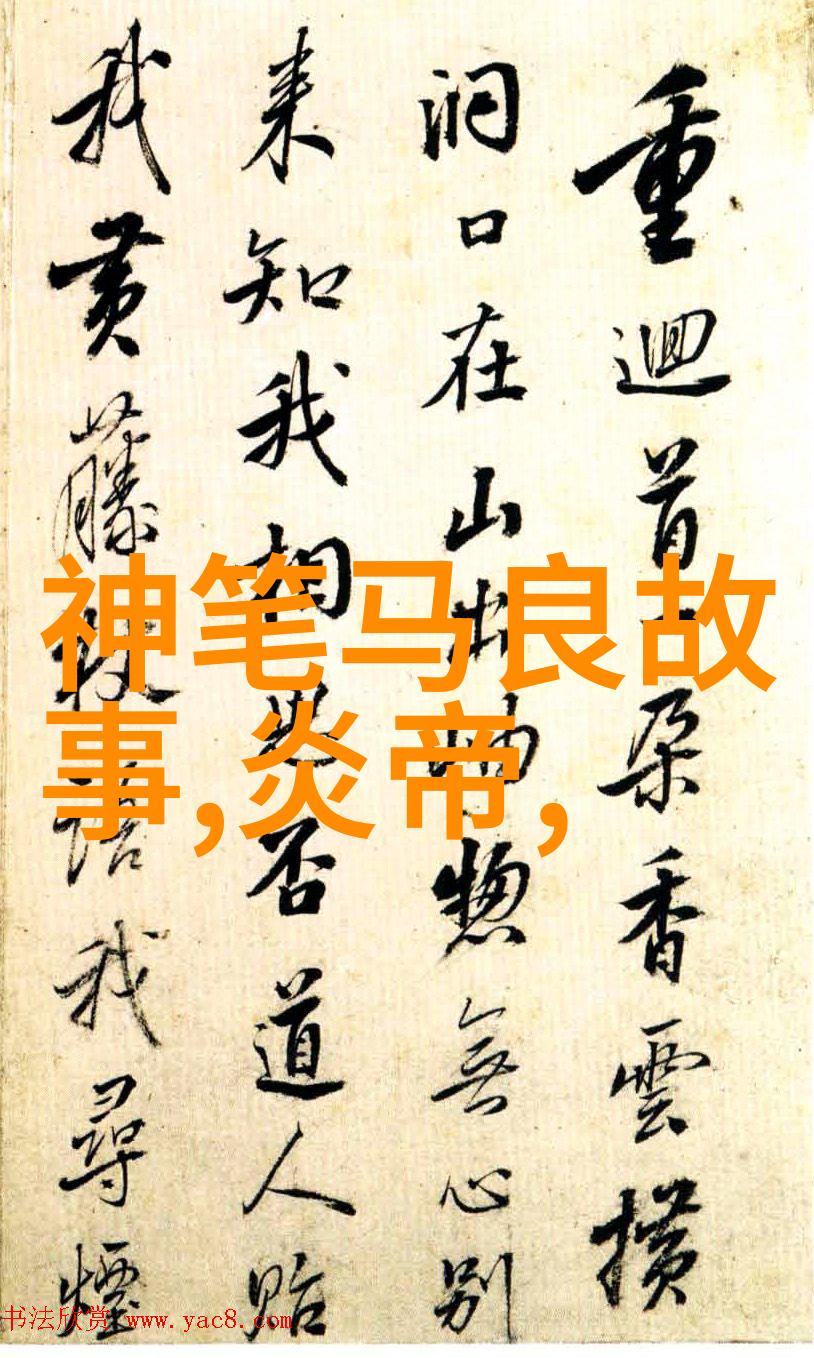 重迴首一朵香雲横
洞口在山出岫惣無心别
来知我相思否道人貽
我黄藤杖語我尋煙
神笔马良故
事,炎帝,
书法欣赏 www.yac8.com